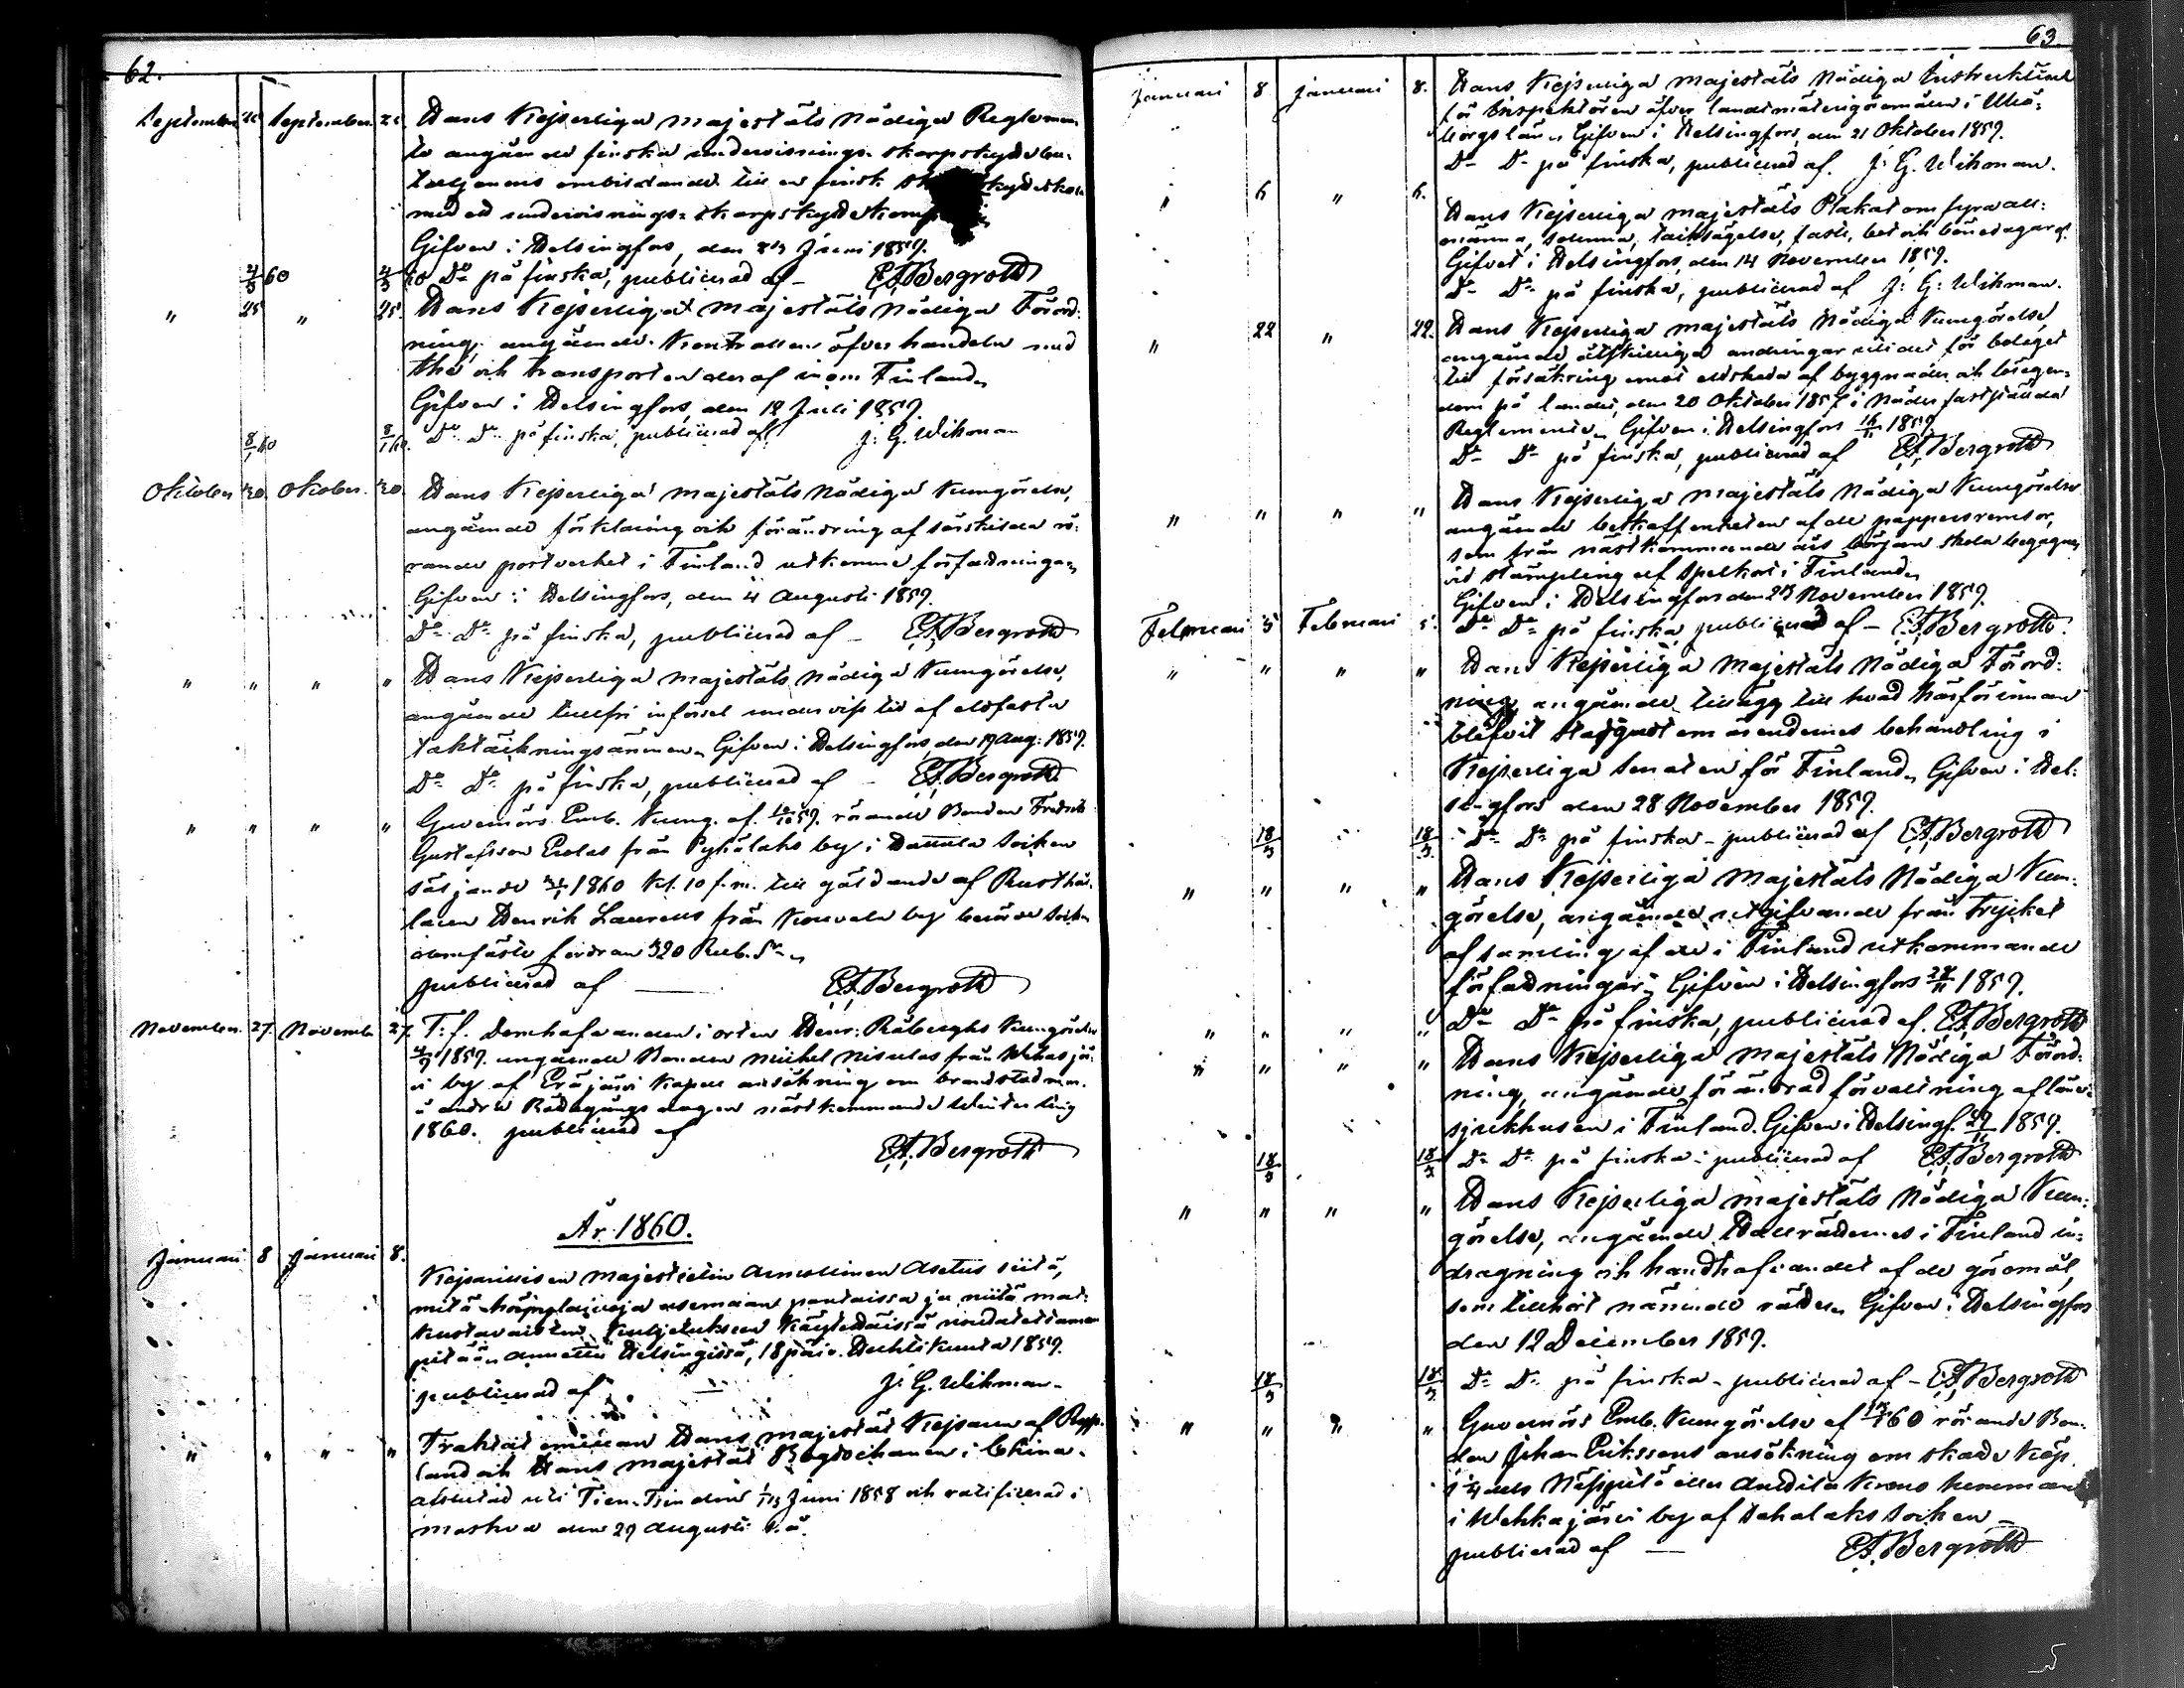 62.
September 25 September 25 Hans Kejserliga Majestäts Nådiga Reglemen-
te angående finska undervisnings-skarpskytteba-
taljonens ombildande till en finsk skytteskola
med ed undervisnings-skarpskyttekomp
Gifven i Helsingfors, den Juni 1859.
4/3 60 4/3 60 Do på finska, publicerad af – E.A. Bergroth
" 25 " 25. Hans Kejserliga Majestäts Nådiga Förord-
ning, angående Kontrollen öfver handeln med
thé och transporten deraf inom Finland,
Gifven i Helsingfors, den 12 Juli 1859.
8/1 60 8/1 60. Do Do på finska, publicerad af J: G. Wikman
Oktober 30 Oktober. 30 Hans Kejserliga Majestäts Nådiga Kungörelse,
angående förklaring och förändring af särskilda rö-
rande postverket i Finland utkomne författningar,
Gifven i Helsingfors, den 4 Augusti 1859.
Do Do på finska, publicerad af – E.A. Bergroth
" " " " Hans Kejserliga Majestäts Nådiga Kungörelse,
angående tullfri införsel under viss tid af eldfasta
taktäckningsämnen, Gifven i Helsingfors, den 19 Aug: 1859.
Do Do på finska, publicerad af – E.A. Bergroth
" " " " Guvernörs Emb. Kung. af 59. rörande Bonden Fredrik
Gustafsson Erolas från Pyhälahs by i Hattula Socken
säljande 1860 kl. 10 f.m. till gäldande af Rusthål-
laren Henrik Laurells från Kouvala by berörde Socken
fordran 320 Rub. Sr.
publicerad af — E.A. Bergroth
November 27 November 27. T:f. Domhafvanden i orten Henr: Råberghs Kungörelse
1859. angående Bonden Michel Niskulas från Wehkajär-
vi by af Eräjärvi Kapell ansökning om brandstodm.
å andra Rådagångs dagen nästkommande Winterting
1860. publicerad af
E.A. Bergroth
År 1860.
Januari 8 Januari 8. Kejsarillisen Majesteetin Armollinen Asetus siitä,
mitä höyrylaivoja asemaan pantaissa ja niitä mat-
kustavaisten kuljetukseen käytettäissä noudatettaman
pitää, Annettu Helsingissä, 18 päiv. Huhtikuuta 1859.
publicerad af — J: G. Wikman
" " " " Traktat emellan Hans Majestät Kejsaren af Ryss-
land och Hans Majestät Bogdochanen i China,
afslutad uti Tien-Tsin den 1/13 Juni 1858 och ratificerad i
Moskva den 29 Augusti s.å.
63.
Januari 8 Januari 8. Hans Kejserliga Majestäts Nådiga Instruktion
för Inspektören öfver landtmäterigöromålen i Uleå-
borgs län, Gifven i Helsingfors, den 21 Oktober 1859.
Do Do på finska, publicerad af. J: G. Wikman.
" 6 " 6. Hans Kejserliga Majestäts Plakat om fyra all-
männa, solenna, tacksägelse, faste, bot och bönedagar,
Gifvet i Helsingfors, den 14 November 1859.
Do Do på finska, publicerad af J: G: Wikman.
" 22 " 22. Hans Kejserliga Majestäts Nådiga Kungörelse,
angående åtskilliga ändringar uti det för bolaget
till försäkring emot eldskada af byggnader och lösegen-
dom på landet, den 20 Oktober 1857 i Nåder fastställda
Reglemente, Gifven i Helsingfors 1859.
Do Do på finska, publicerad af E.A. Bergroth
" " " " Hans Kejserliga Majestäts Nådiga Kungörelse
angående beskaffenheten af de pappersremsor,
som från nästkommande års början skola begagnas
vid stämpling af Spelkort i Finland,
Gifven i Helsingfors den 23 November 1859.
Februari 5 Februari 5. Do Do på finska, publicerad af – E.A. Bergroth.
" " " " Hans Kejserliga Majestäts Nådiga Förord-
ning, angående tillägg till hvad härförinnan
blifvit stadgadt om ärendernes behandling i
Kejserliga Senaten för Finland, Gifven i Hel-
singfors den 28 November 1859.
18/3 18/3. Do Do på finska – publicerad af E.A. Bergroth
" " " " Hans Kejserliga Majestäts Nådiga Kun-
görelse, angående utgifvande från Trycket
af samling af de i Finland utkommande
författningar, Gifven i Helsingfors 1859.
" " " " Do Do på finska, publicerad af. E.A. Bergroth
" " " " Hans Kejserliga Majestäts Nådiga Förord-
ning, angående förändrad förvaltning af läne-
sjukhusen i Finland. Gifven i Helsingf. 29/11 1859.
18/3 18/3 Do Do på finska – publicerad af E.A. Bergroth
" " " " Hans Kejserliga Majestäts Nådiga Kun-
görelse, angående Hallrätternes i Finland in-
dragning och handhafvandet af de göromål,
som tillhört nämnde rätter, Gifven i Helsingfors
den 12 December 1859.
18/3 18/3 Do Do på finska – publicerad af – E.A. Bergroth
" " " " Guvernörs Emb. Kungörelse af 60 rörande Bon-
den Johan Erikssons ansökning om skatte köp
å Näppilä eller Anttila Krono hemman
i Wehkajärvi by af Sahalaks Socken –
publicerad af — E.A. Bergroth